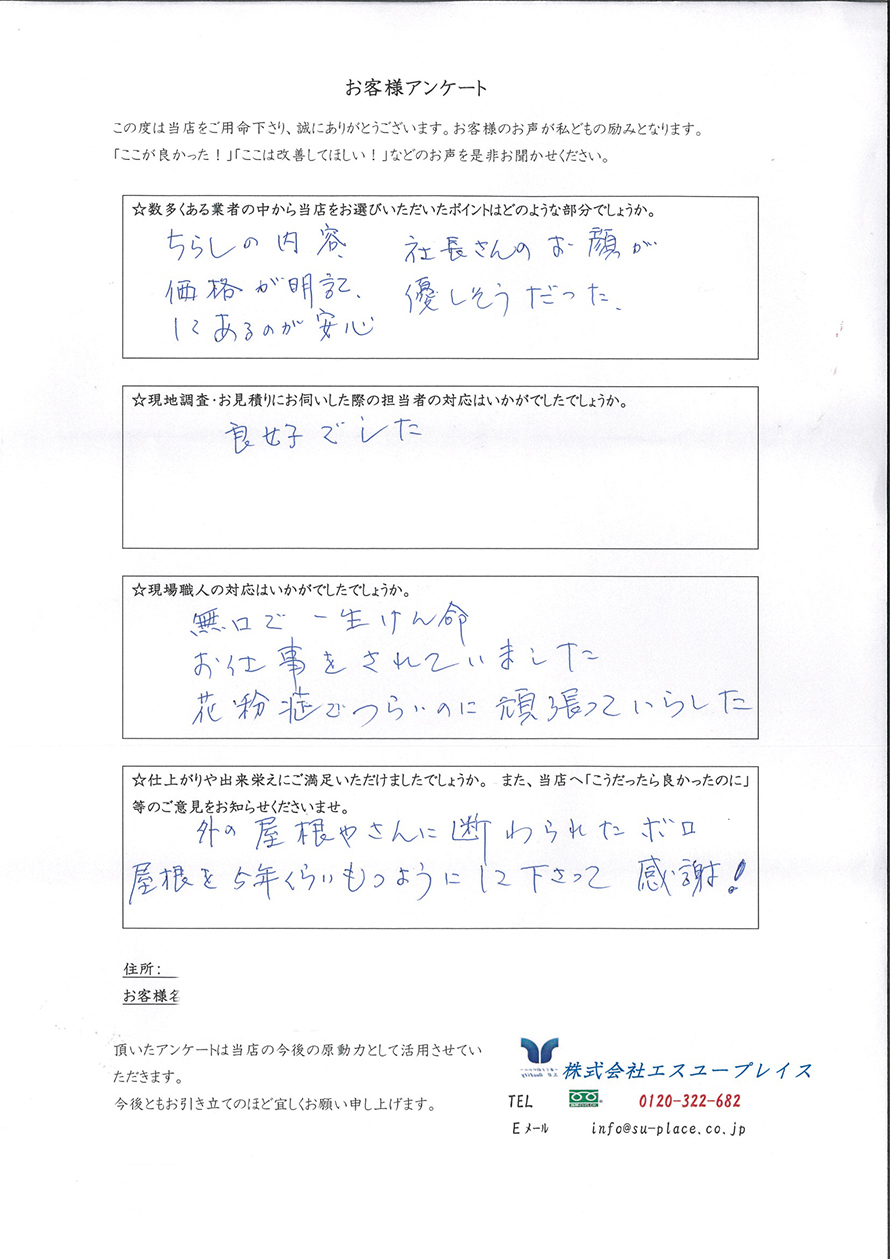 お客様アンケート
この度は当店をご用命下さり、誠にありがとうございます。お客様のお声が私どもの励みとなります。
「ここが良かった！」「ここは改善してほしい！」などのお声を是非お聞かせください。
☆数多くある業者の中から当店をお選びいただいたポイントはどのような部分でしょうか。
ちらしの内容、
価格が明記、
にあるのが安心
社長さんのお顔が
優しそうだった、
☆現地調査・お見積りにお伺いした際の担当者の対応はいかがでしたでしょうか。
良好でした
☆現場職人の対応はいかがでしたでしょうか。
無口で一生けん命
お仕事をされていました
花粉症でつらいのに頑張っていらした
☆仕上がりや出来栄えにご満足いただけましたでしょうか。 また、当店へ「こうだったら良かったのに」
等のご意見をお知らせくださいませ。
外の屋根やさんに断わられたボロ
屋根を5年くらいもつようにして下さって 感謝!
住所:
お客様名
頂いたアンケートは当店の今後の原動力として活用させてい
ただきます。
今後ともお引き立てのほど宜しくお願い申し上げます。
株式会社エスユープレイス
TEL 0120-322-682
Eメール info@su-place.co.jp